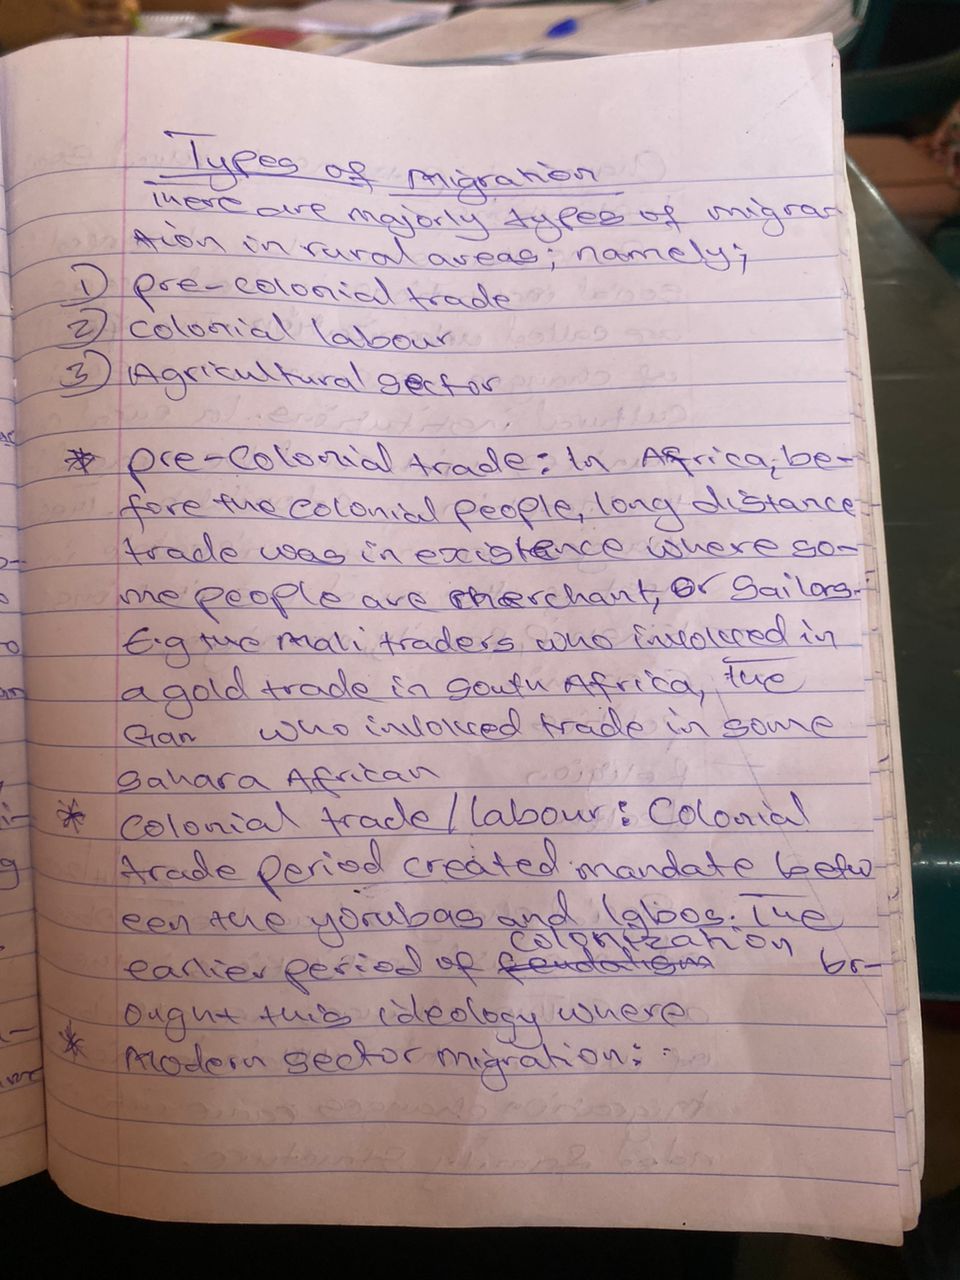 Types of migration
There are majorly types of migra-
tion in rural areas; namely;
1) pre-colonial trade
2) colonial labour
3) Agricultural sector
* pre-colonial trade: In Africa, be-
fore the colonial people, long distance
trade was in existence where so-
me people are merchant, or sailors.
E.g the Mali traders who involved in
a gold trade in South Africa, The
who involved trade in some
Sahara African
* colonial trade/labour: Colonial
trade period created mandate betw
een the yorubas and Igbos. The
colonization
earlier period of feudalism br-
ought this ideology where
* Modern sector migration: